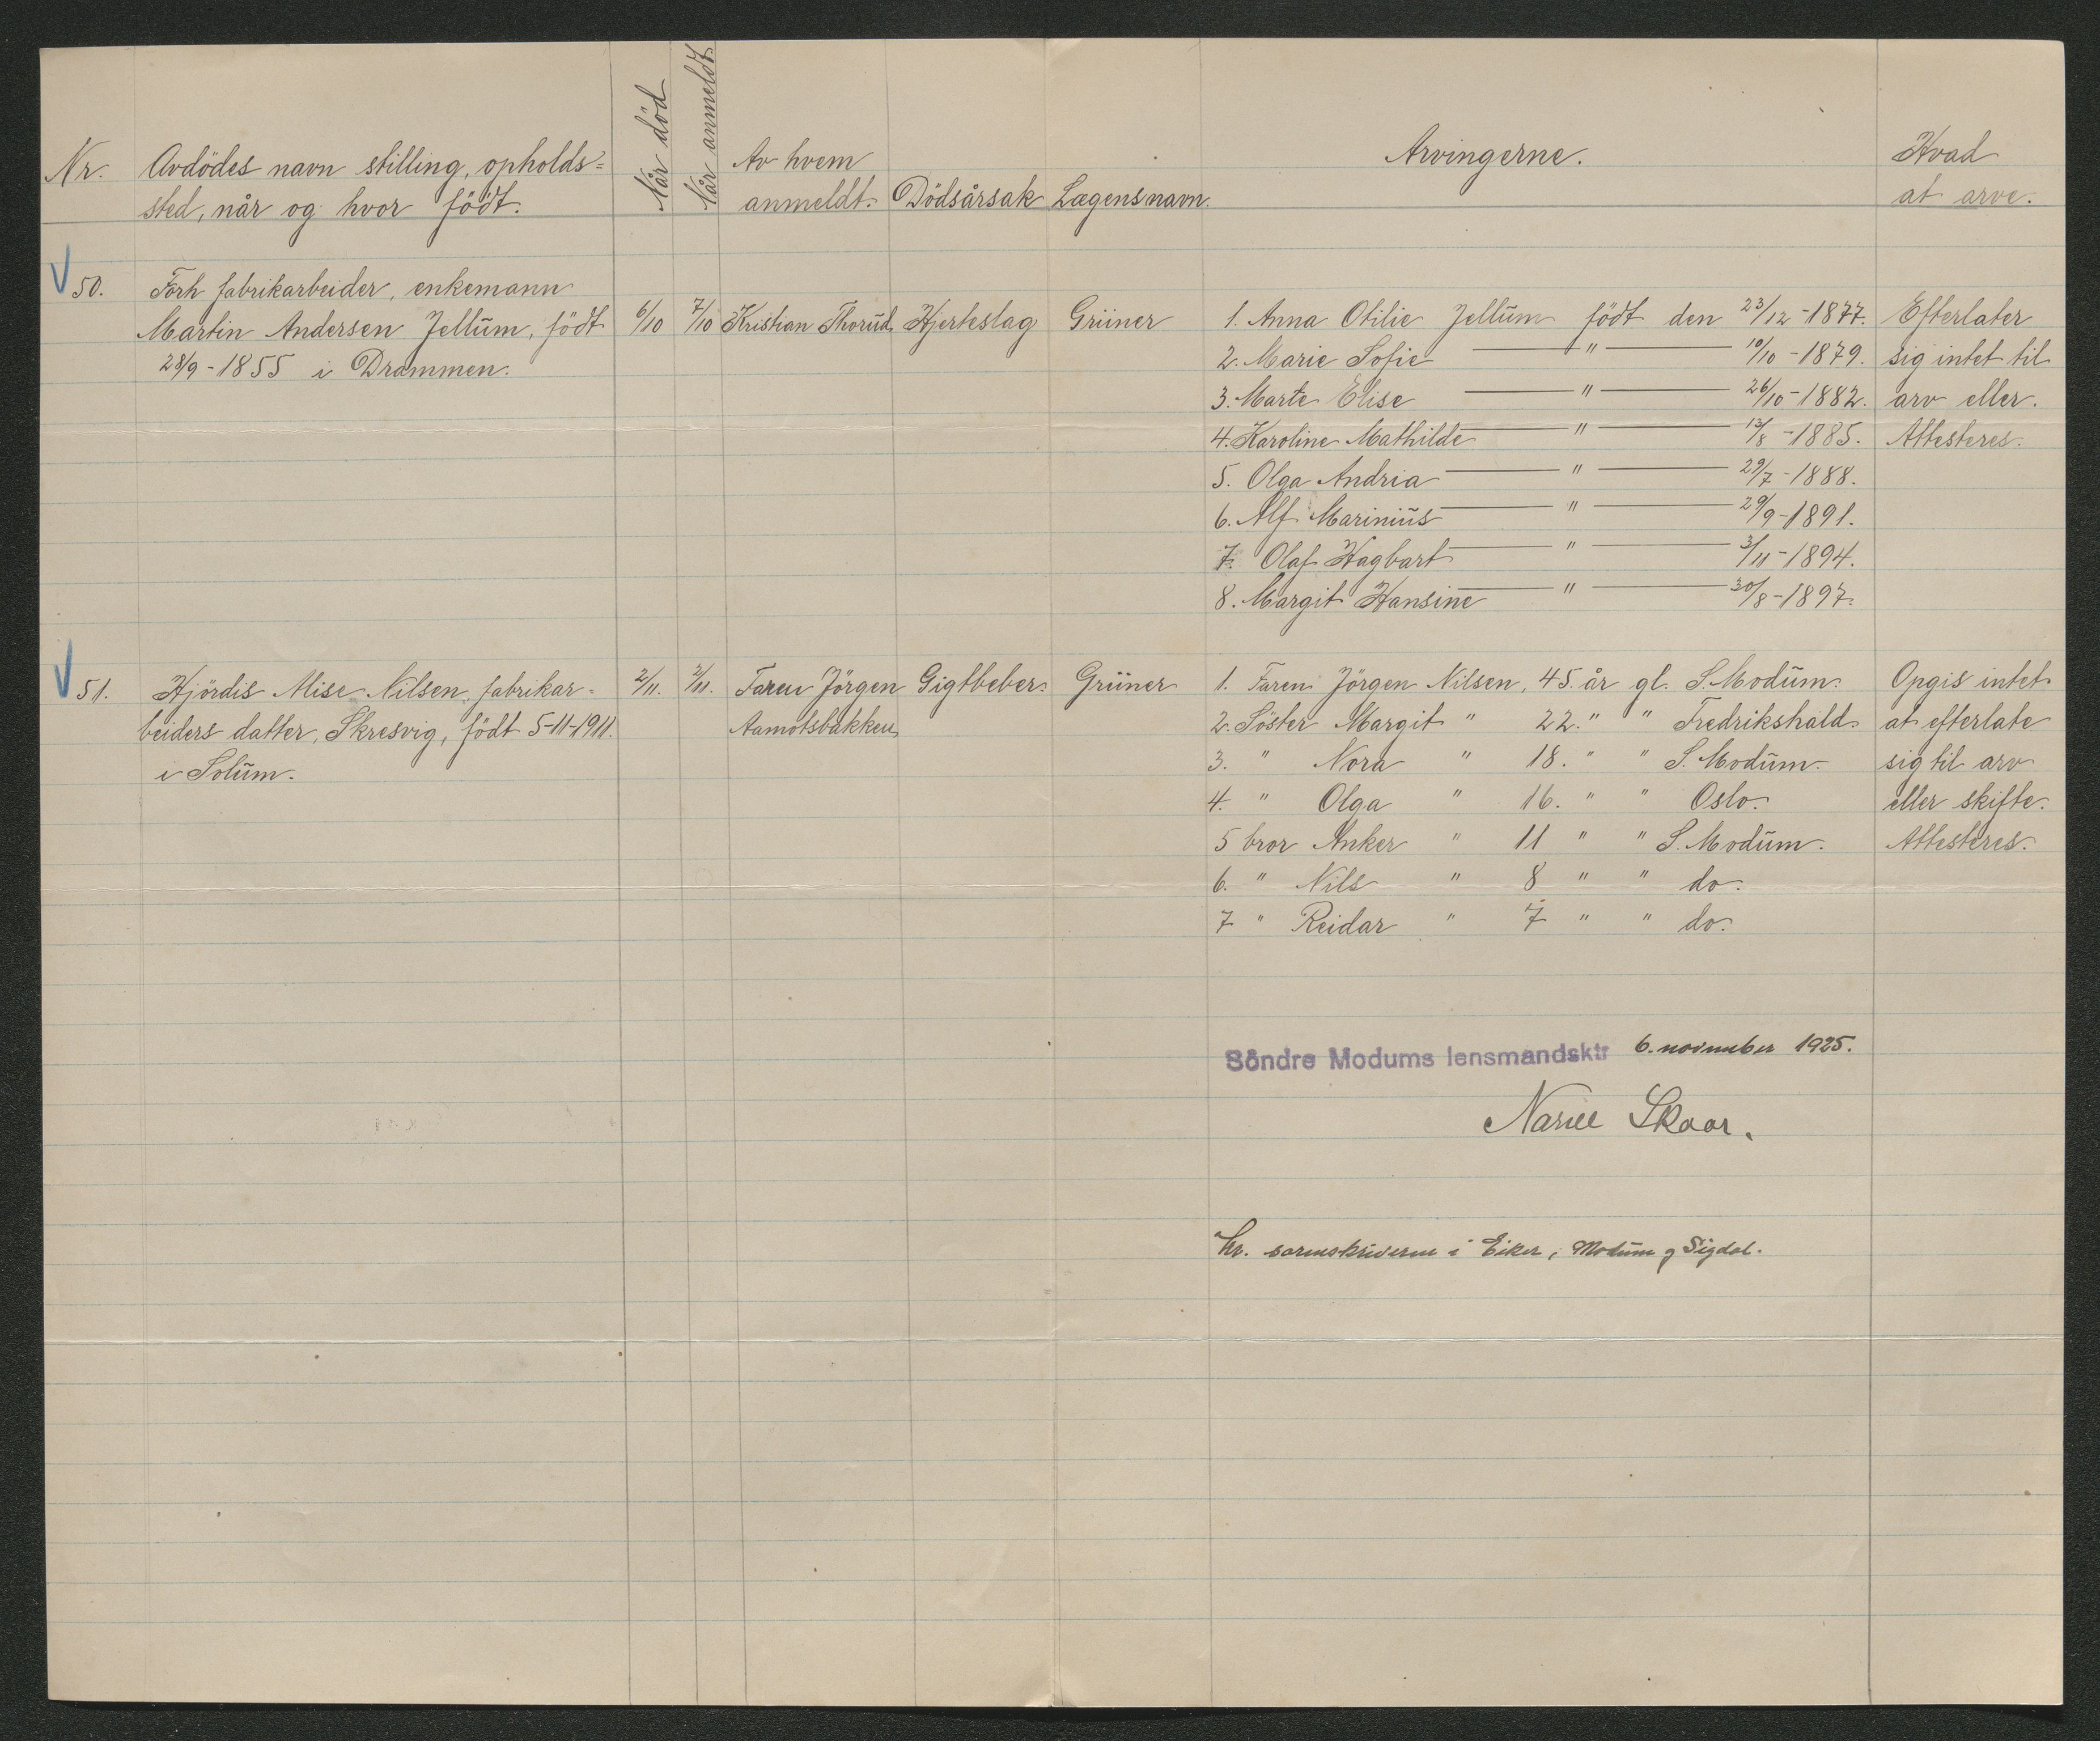 Nr. Avdödes navn stilling, opholds=
sted, når og hvor født.
Når död
Når anmeldt
Av hvem
anmeldt.
Dödsårsak
Lægens navn.
Arvingerne.
Hvad
at arve.
50. Forh fabrikarbeider, enkemann
Martin Andersen Jellum, födt
28/9 - 1855 i Drammen.
6/10
7/10
Kristian Thorud
Hjerteslag
Grüner
1. Anna Otilie Jellum födt den 23/12 - 1877.
2. Marie Sofie — " — 10/10 - 1879.
3. Marte Elise — " — 26/10 - 1882.
4. Karoline Mathilde — " — 13/8 - 1885.
5. Olga Andria — " — 29/7 - 1888.
6. Alf Marinius — " — 29/9 - 1891.
7. Olaf Hagbart — " — 3/11 - 1894.
8. Margit Hansine — " — 30/8 - 1897.
Efterlater
sig intet til
arv eller.
Attesteres.
51. Hjördis Alise Nilsen, fabrikar=
beiders datter, Skresvig, födt 5-11-1911.
i Solum.
2/11.
2/11.
Faren Jörgen
Aamotsbakken
Gigtbeber.
Grüner
1. Faren Jörgen Nilsen, 45 år gl. S. Modum.
2. Söster Margit " 22. " " Fredrikshald.
3. " Nora " 18. " " S. Modum.
4. " Olga " 16. " " Oslo.
5 bror Anker " 11 " " S. Modum.
6. " Nils " 8 " " do.
7 " Reidar " 7 " " do.
Opgis intet
at efterlate
sig til arv
eller skifte.
Attesteres.
Söndre Modums lensmandsktr 6. november 1925.
Skaar.
Hr. sorenskriveren i Eiker, Modum og Sigdal.